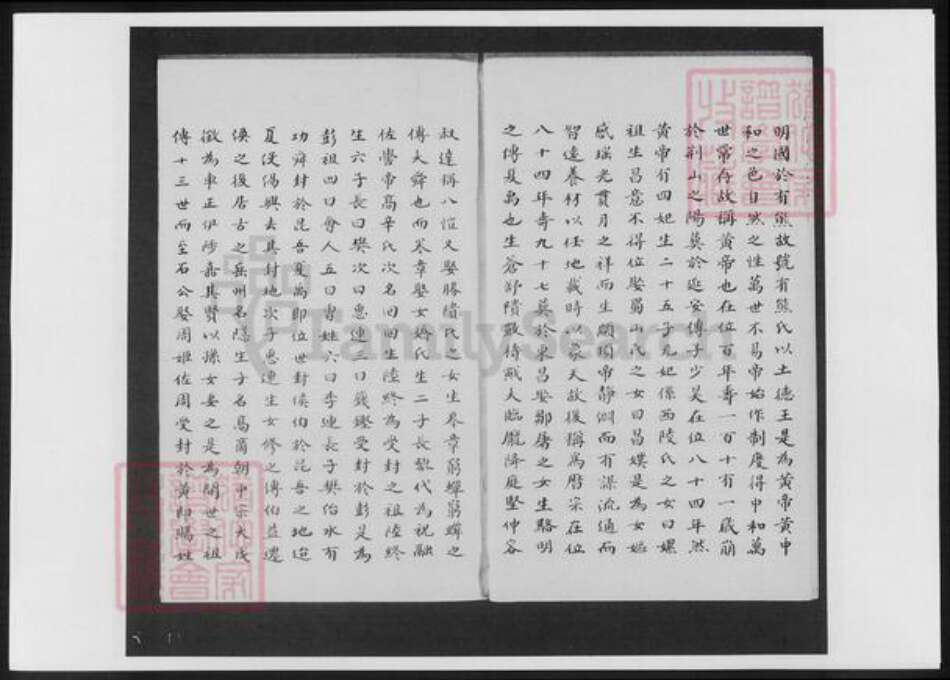 明國於有熊故號有熊氏以土德王是為黃帝黃中
和之色自然之性萬世不易帝始作制度得中和萬
世常存故稱黃帝也在位百年壽一百十有一歲崩
於荆山之陽葬於延安傳子少昊在位八十四年然
黃帝有四妃生二十五子元妃係西陵氏之女曰嫘
祖生昌意不得位娶蜀山氏之女曰昌媄是為女姤
感瑤光貫月之祥而生顓頊帝靜淵而有謀流通而
智遠養材以任地載時以象天故後稱為曆宗在位
八十四年壽九十七葬於東昌娶鄒屠之女生駱明
之傳夏禹也生蒼舒隤敳檮戭大臨龐降庭堅仲容
叔達稱八愷又娶勝瀆氏之女生卷章窮蟬窮蟬之
傳大舜也而卷章娶女嬌氏生二子長黎代為祝融
佐嚳帝高辛氏次名曰回生陸終為受封之祖陸終
生六子長曰樊次曰惠連三曰籛鏗受封於彭是為
彭祖四曰會人五曰曹姓六曰季連長子樊佐水有
功舜封於昆吾夏禹即位世封侯伯於昆吾之地迨
夏浸傷興去其封地次子惠連生女修之傳伯益遷
侯之後居古之岳州名隱生子名葛商朝中宗大戊
徵為車正伊陟嘉其賢以孫女妻之是為開世之祖
傳十三世而至石公娶周姬佐周受封於黃即賜姓
FamilySearch